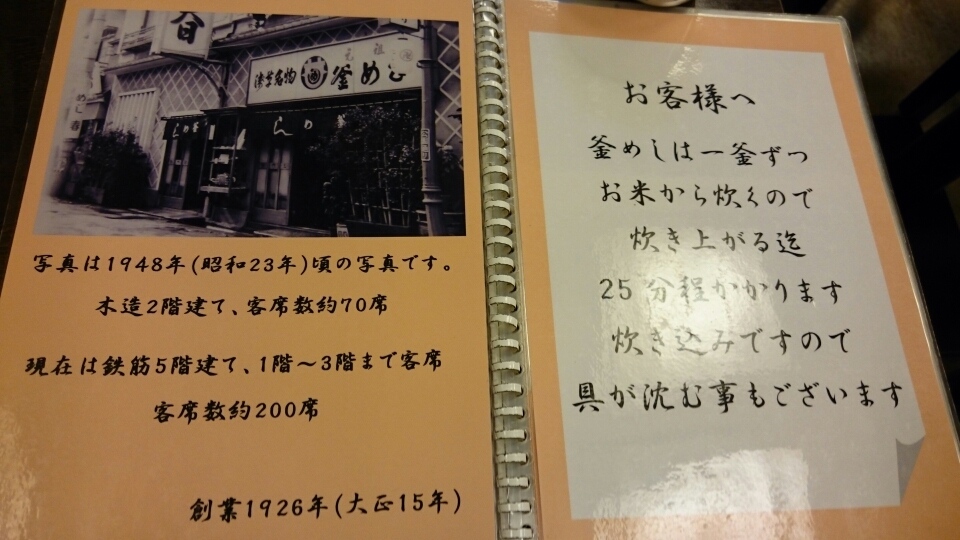 浅草名物 釜めし
元祖
めし 春
写真は1948年(昭和23年)頃の写真です。
木造2階建て、客席数約70席
現在は鉄筋5階建て、1階～3階まで客席
客席数約200席
創業1926年(大正15年)
お客様へ
釜めしは一釜ずつ
お米から炊くので
炊き上がる迄
25分程かかります
炊き込みですので
具が沈む事もございます